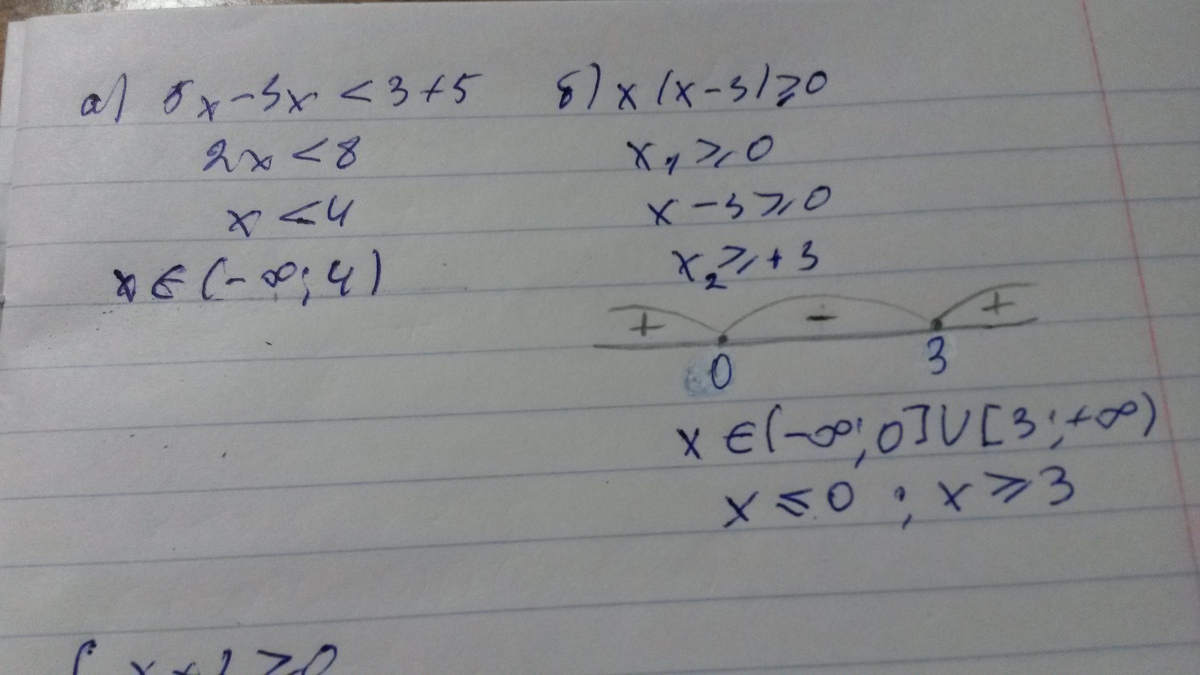 а) 5x-3x < 3+5
2x < 8
x < 4
x ∈ (-∞; 4)
б) x(x-3) ≥ 0
x₁ ≥ 0
x-3 ≥ 0
x₂ ≥ +3
+ - +
0 3
x ∈ (-∞; 0] ∪ [3; +∞)
x ≤ 0 ; x ≥ 3